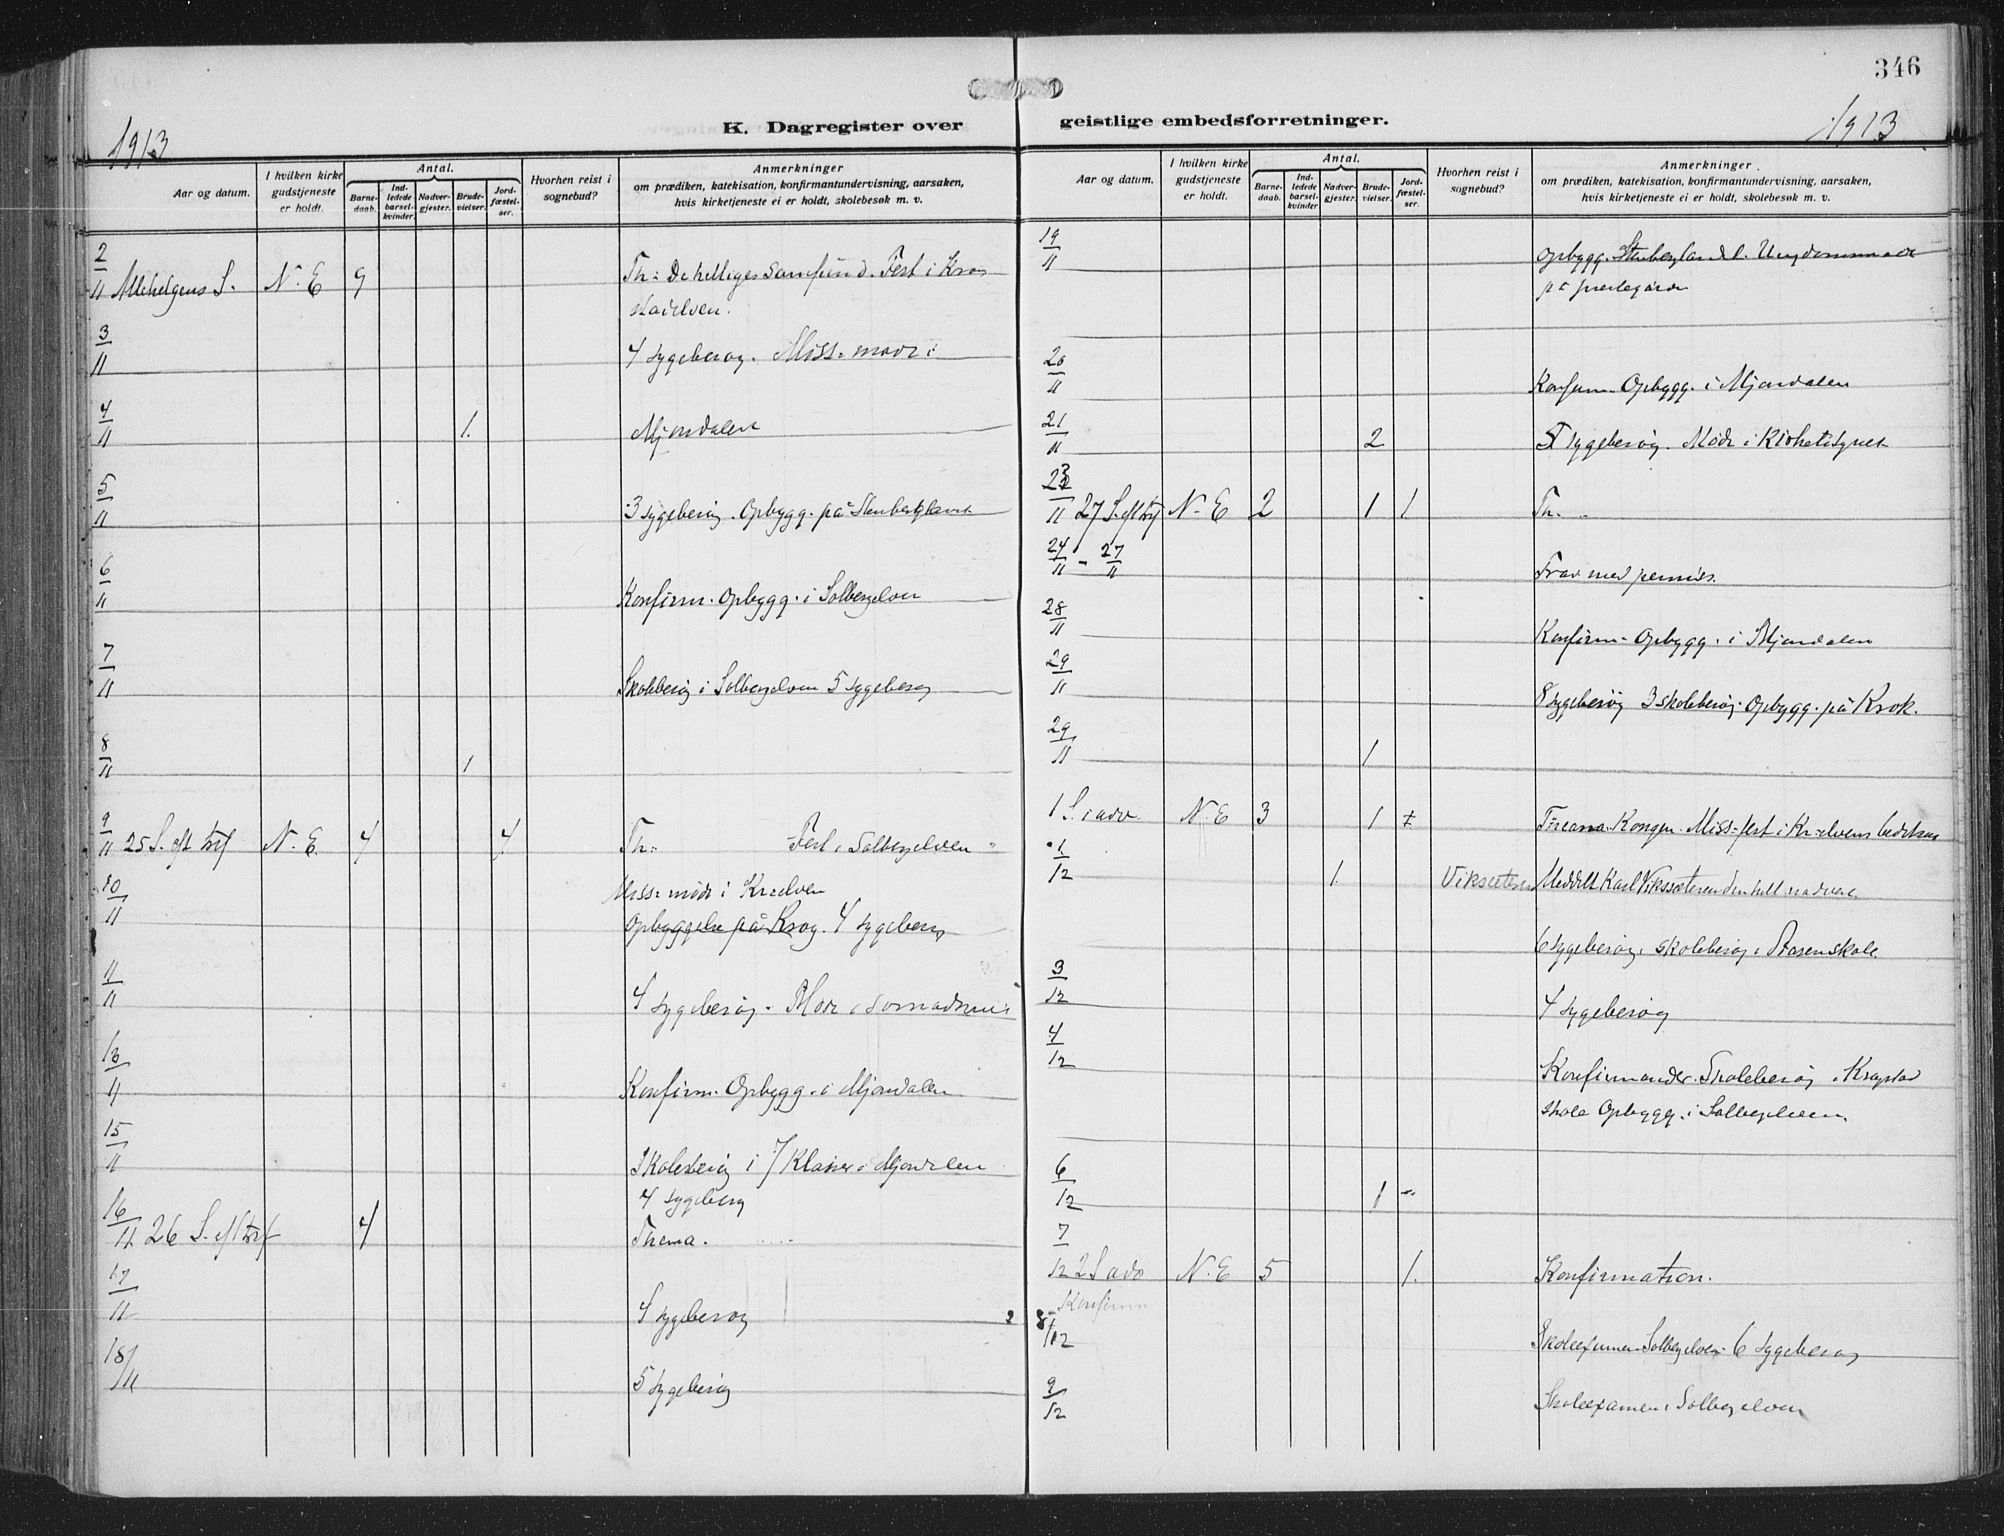 346
1913
K. Dagregister over
geistlige embedsforretninger.
1913
Aar og datum.
I hvilken kirke gudstjeneste er holdt.
Antal.
Barne-daab.
Ind-ledede barsel-kvinder.
Nadver-gjester.
Brude-vielser.
Jord-fæstel-ser.
Hvorhen reist i sognebud?
Anmerkninger
om prædiken, katekisation, konfirmantundervisning, aarsaken,
hvis kirketjeneste ei er holdt, skolebesøk m. v.
2/11 Allehelgens S. N. E 9 Th= De helliges samfund. Fest i Kros
stadelven.
3/11 4 sygebesøg. Miss= møde i
4/11 1. Mjøndalen
5/11 3 sygebesøg. Opbygg. på Stenberglandet
6/11 Konfirm. Opbygg. i Solbergelven
7/11 Skolebesøg i Solbergelven 5 sygebesøg
8/11 1
9/11 25 S. eft tref N. E. 4 4 Th= Fest i Solbergelven
10/11 Miss= møde i Kr=elven
Opbyggelse på Krog. 4 sygebesøg
11/11 4 sygebesøg. Møde i
13/11 Konfirm. Opbygg. i Mjøndalen
15/11 Skolebesøg i 7 Klasser i Mjøndalen
4 sygebesøg
16/11 26 S. eft tref 4 Thema.
17/11 4 sygebesøg
18/11 5 sygebesøg
Aar og datum.
I hvilken kirke gudstjeneste er holdt.
Antal.
Barne-daab.
Ind-ledede barsel-kvinder.
Nadver-gjester.
Brude-vielser.
Jord-fæstel-ser.
Hvorhen reist i sognebud?
Anmerkninger.
om prædiken, katekisation, konfirmantundervisning, aarsaken,
hvis kirketjeneste ei er holdt, skolebesøk m. v.
19/11 Opbygg. Stenberglandet. Ungdomsmøde
på prestegården
20/11 Konfirm. Opbygg. i Mjøndalen
21/11 2 5 sygebesøg. Møde i
23/11 27 S. eft tref N. E 2 1 1 Th.
24/11 - 27/11 Frav med permis.
28/11 Konfirm. Opbygg. i Mjøndalen
29/11 8 sygebesøg 3 skolebesøg. Opbygg. på Krok.
29/11 1
1 S. i adv. N. E 3 1 Kongen. Miss=fest i Kr=elvens bedehus
1/12 1. Viksæteren Meddelt Karl Viksæteren den hell nadvere
6 sygebesøg. skolebesøg i Aasen skole
3/12 4 sygebesøg
4/12 Konfirmander. Skolebesøg i Krogstad
skole Opbygg. i Solbergelven.
6/12 1
7/12 2 S adv N. E 5 1. Konfirmation.
Konfirm
8/12 Skoleexamen Solbergelven 6 sygebesøg
9/12 Skoleexamen i Solbergelven